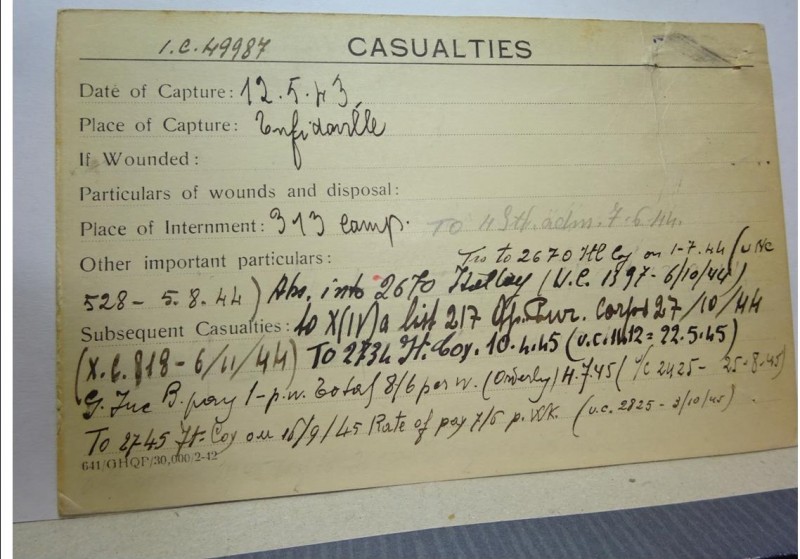 1.C.49987 CASUALTIES
Date of Capture: 12.5.43
Place of Capture: Enfidaville
If Wounded:
Particulars of wounds and disposal:
Place of Internment: 313 Camp. TO
Other important particulars: to 2670 Cy on 1-7.44 (
528 - 5.8.44) Abs. into 2670 (U.C. 1597 - 6/10/44)
Subsequent Casualties: to X(IV)a list 217 Corps 27/10/44
(X.C. 818 - 6/11/44) To 2734 It. Coy. 10.4.45 (U.C. 1412 = 22.5.45)
B. pay 1-p.w. Total 8/6 per w. (Orderly) (U/C 2425 - 25-8-45)
To 2745 It. Coy on /9/45 Rate of pay 7/6 p. WK. (U.C. 2825 - 3/10/45)
641/GHQP/30,000/2-42